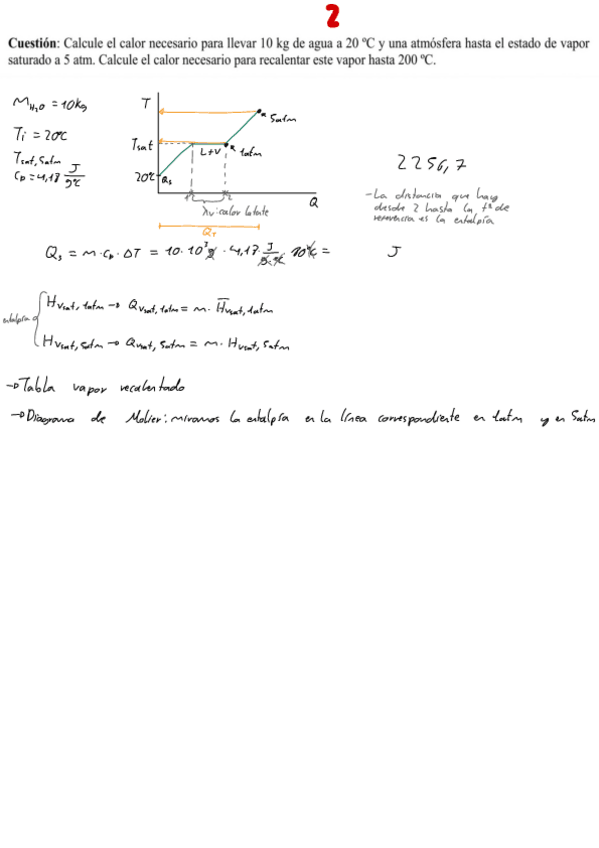 2
Cuestión: Calcule el calor necesario para llevar 10 kg de agua a 20 ºC y una atmósfera hasta el estado de vapor
saturado a 5 atm. Calcule el calor necesario para recalentar este vapor hasta 200 ºC.
M H₂O = 10kg
Ti = 20ºC
Tsat, 5atm
Cp = 4,18 J/gºC
T
5atm
Tsat
L+V
1atm
20ºC
Qs
Q
λv: calor latente
QT
2256,7
- La distancia que hay
desde 2 hasta la tª de
referencia es la entalpía
Qs = m · Cp · ΔT = 10 · 10³g · 4,18 · J/g·ºC · 80ºC = J
entalpía
Hvsat, 1atm → Qvsat, 1atm = m · H̅vsat, 1atm
Hvsat, 5atm → Qvsat, 5atm = m · Hvsat, 5atm
→ Tabla vapor recalentado
→ Diagrama de Molier: miramos la entalpía en la línea correspondiente en 1atm y en 5atm